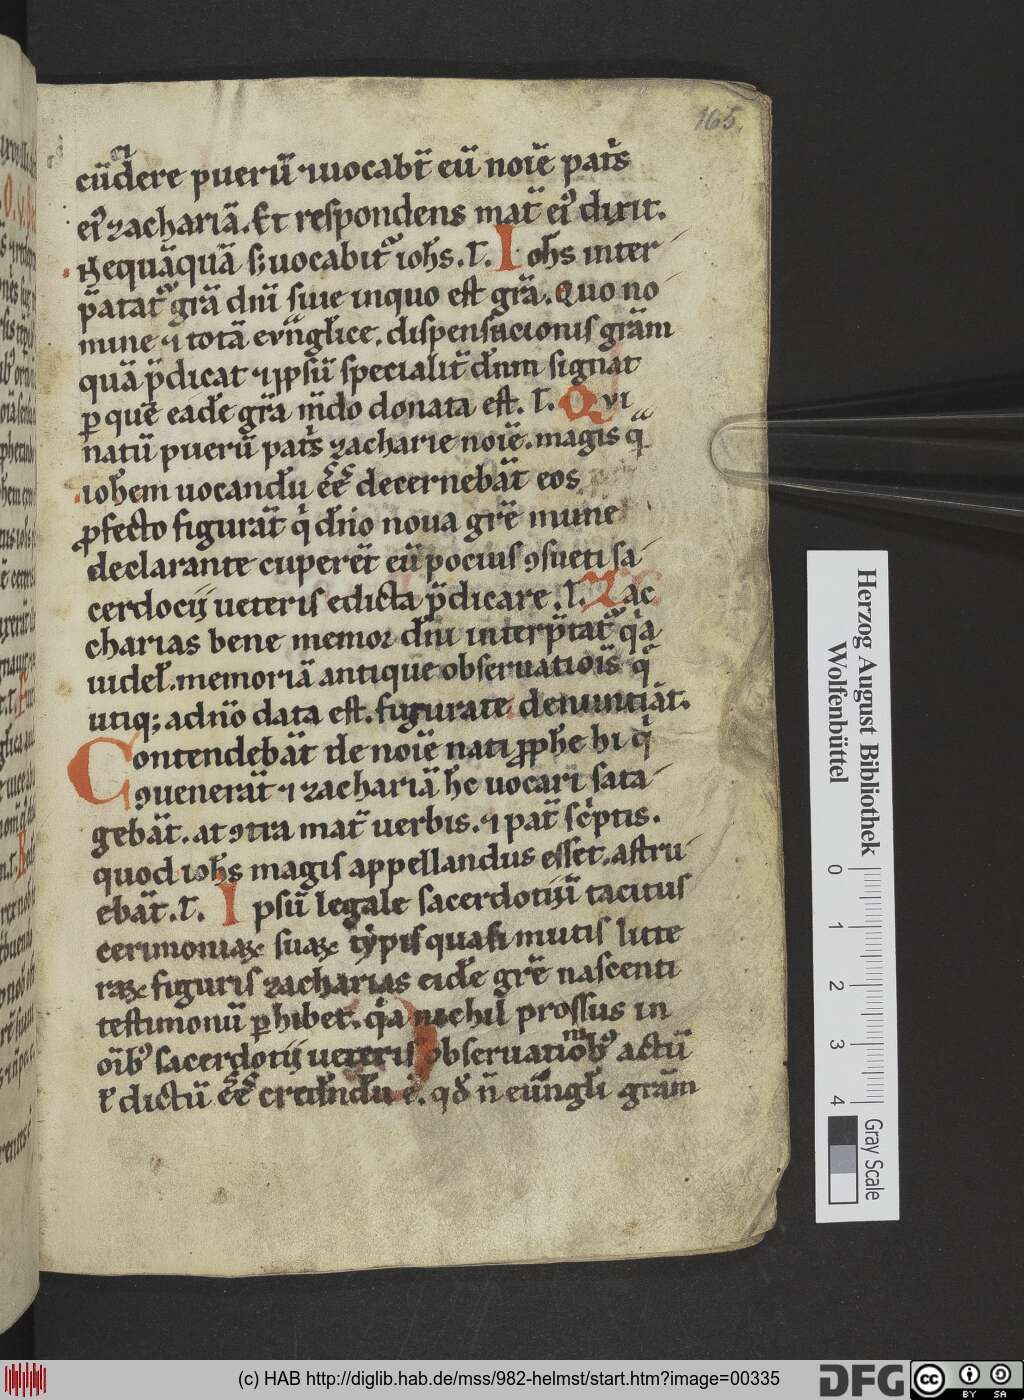 165.
cū̄dere puerū ⁊uocabt̄ eū noīe pat̄s
ei᷒ zachariā. Et respondens mat̄ ei᷒ dixit.
Nequāquā s; uocabit᷒ ioh̄s. L. Ioh̄s inter
p̄tat᷒ grā dn̄i siue inquo est grā. Quo no
mine ⁊ totā evn̄glice. dispensacionis grām
quā p̄dicat ⁊ ip̄sū specialit̄ dn̄m signat
ꝑ quē eadē grā m̄do donata est. L. Qui
natū puerū pat̄s zacharie noīe. magis q̄
ioh̄em uocandū ēē decernebāt eos
ꝓfecto figurāt q̇ dn̄o noua grē mune
declarante cuperēt eū pocius ꝯsueti sa
cerdocij ueteris edicta p̄dicare. L. Zac
charias bene memor dn̄i interp̄tat᷒ q̇a
uidel̄. memoriā antique obseruatiois q̄
utiq; adn̄o data est. figurate denuntiāt.
Contendebāt de noīe nati ꝓph̄e hi q̇
ꝯuenerāt ⁊ zachariā h̄c uocari sata
gebāt. at ꝯtra mat̄ uerbis. ⁊ pat̄ sc̄ptis.
quod ioh̄s magis appellandus esset. astru
ebāt. L. Ipsū legale sacerdotiū tacitus
cerimoniaꝝ suaꝝ typis quasi mutis litte
raꝝ figuris zacharias eidē grē nascenti
testimoniū ꝑhibet. q̇a nichil prossus in
oīb᷒ sacerdotij ueteris obseruatiōīb᷒ actū
ł dictū ēē credendū ē. qđ n̄ eūngl̄i grām
Herzog August Bibliothek
Wolfenbüttel
0 1 2 3 4
Gray Scale
(c) HAB http://diglib.hab.de/mss/982-helmst/start.htm?image=00335
DFG
cc BY SA